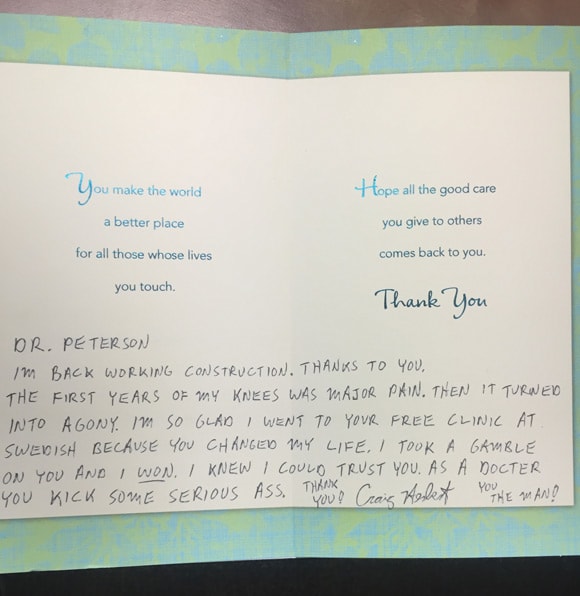 You make the world
a better place
for all those whose lives
you touch.
Hope all the good care
you give to others
comes back to you.
Thank You
DR. PETERSON
IM BACK WORKING CONSTRUCTION. THANKS TO YOU.
THE FIRST YEARS OF MY KNEES WAS MAJOR PAIN. THEN IT TURNED
INTO AGONY. IM SO GLAD I WENT TO YOUR FREE CLINIC AT
SWEDISH BECAUSE YOU CHANGED MY LIFE. I TOOK A GAMBLE
ON YOU AND I WON. I KNEW I COULD TRUST YOU. AS A DOCTER
YOU KICK SOME SERIOUS ASS. THANK YOU! Craig YOU THE MAN!